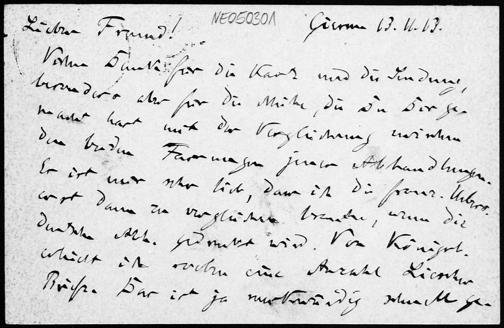 Lieber Freund! NE050301 Giessen 13.11.13.
Vielen Dank für die Karte und die Sendung,
besonders aber für die Mühe, die Du Dir ge-
macht hast mit der Vergleichung zwischen
den beiden Fassungen jener Abhandlungen.
Es ist mir sehr lieb, dass ich die franz. Übers.
erst dann zu vergleichen brauche, wenn die
deutsche Abh. gedruckt wird. Von Königsb.
erhielt ich soeben eine Anzahl
Briefe. Das ist ja merkwürdig schnell ge-